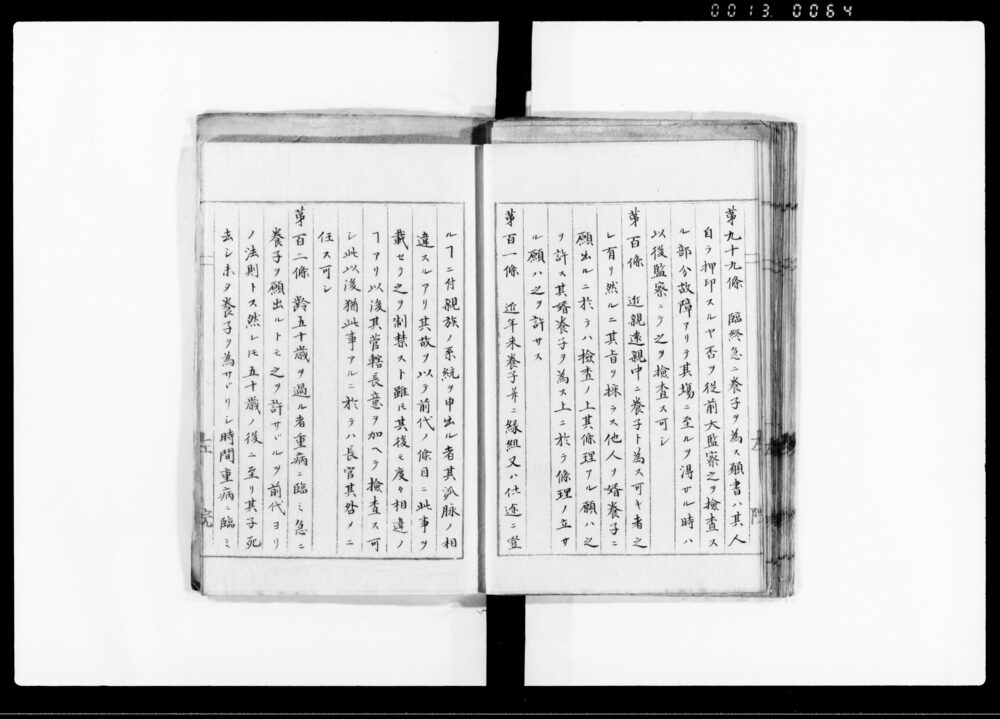 0013. 0064
第九十九條 臨終急ニ養子ヲ為ス願書ハ其人
自ラ押印スルヤ否ヲ従前大監察之ヲ檢査ス
ル部分故障アリテ其場ニ至ルヲ得サル時ハ
以後監察ニテ之ヲ檢査ス可シ
第百條 近親遠親中ニ養子ト為ス可キ者之
レ有リ然ルニ其旨ヲ採ラス他人ヲ婿養子ニ
願出ルニ於テハ檢査ノ上其條理アル願ハ之
ヲ許ス其婿養子ヲ為ス上ニ於テ條理ノ立サ
ル願ハ之ヲ許サス
第百一條 近年来養子并ニ縁組又ハ仕途ニ登
ルヿニ付親族ノ系統ヲ申出ル者其派脉ノ相
違スルアリ其故ヲ以テ前代ノ條目ニ此事ヲ
載セテ之ヲ制禁スト雖圧其後モ度々相違ノ
ヿアリ以後其管轄長意ヲ加ヘテ檢査ス可
シ此以後猶此事アルニ於テハ長官其咎メニ
任ス可シ
第百二條 齢五十歳ヲ過ル者重病ニ臨ミ急ニ
養子ヲ願出ルトモ之ヲ許サヾルヲ前代ヨリ
ノ法則トス然レ𪜈五十歳ノ後ニ至リ其子死
去シ未タ養子ヲ為サヾリシ時間重病ニ臨ミ
左 院